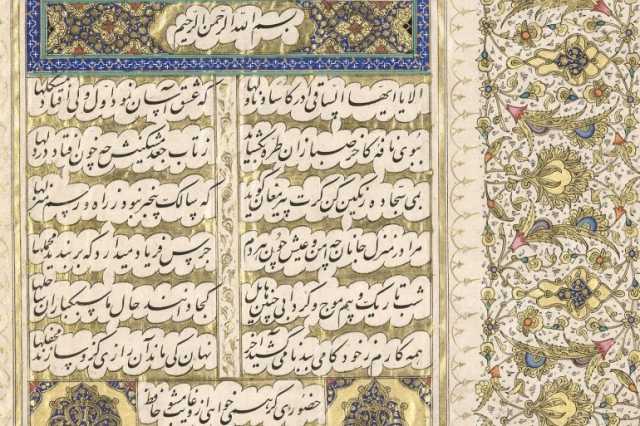 بسم الله الرحمن الرحیم
الا یا ایها الساقی ادر کاسا وناولها که عشق آسان نمود اول ولی افتاد مشکلها
ببوی نافه کاخر صبا زان طره بگشاید ز تاب جعد مشکینش چه خون افتاد در دلها
بمی سجاده رنگین کن گرت پیر مغان گوید که سالک بیخبر نبود ز راه و رسم منزلها
مرا در منزل جانان چه امن و عیش چون هر دم جرس فریاد میدارد که بربندید محملها
شب تاریک و بیم موج و گردابی چنین هایل کجا دانند حال ما سبکباران ساحلها
همه کارم ز خود کامی ببدنامی کشید آخر نهان کی ماند آن رازی کزو سازند محفلها
حضوری گر همی خواهی ازو غایب مشو حافظ